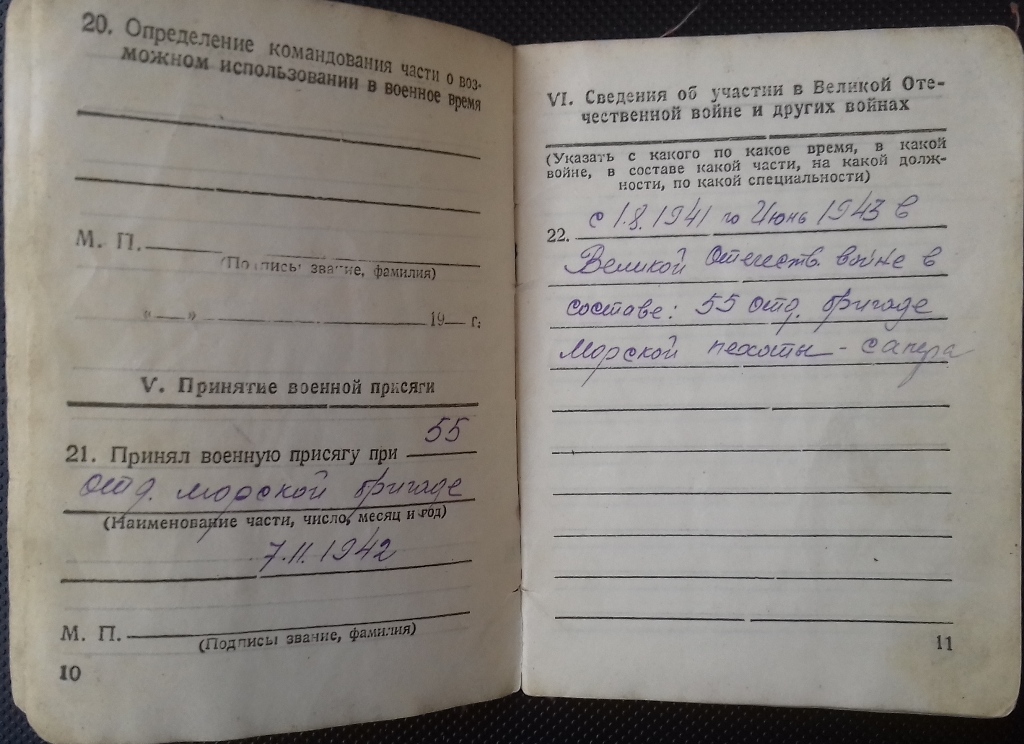 20. Определение командования части о воз-
можном использовании в военное время
М. П.
(Подпись, звание, фамилия)
"—" 19— г.
V. Принятие военной присяги
21. Принял военную присягу при 55
отд. морской бригаде
(Наименование части, число, месяц и год)
7.11.1942
М. П.
(Подпись, звание, фамилия)
10
VI. Сведения об участии в Великой Оте-
чественной войне и других войнах
(Указать с какого по какое время, в какой
войне, в составе какой части, на какой долж-
ности, по какой специальности)
22. с 1.8.1941 по Июнь 1943 в
Великой Отечеств. войне в
составе: 55 отд. бригаде
Морской пехоты - сапера
11